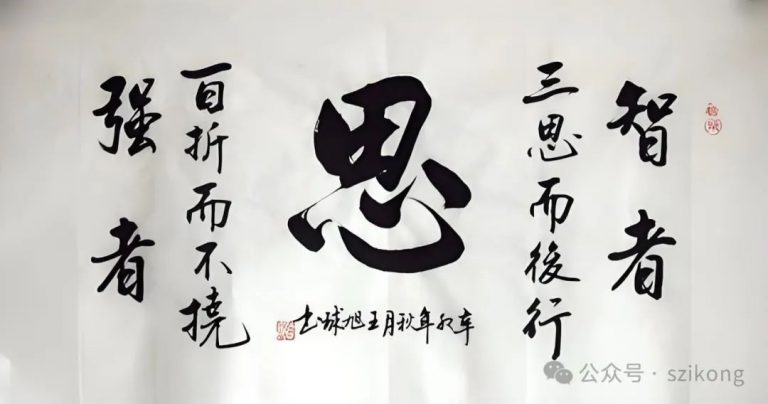 智者
三思而後行
思
百折而不撓
强者
年秋月王旭球书
公众号 · szikong